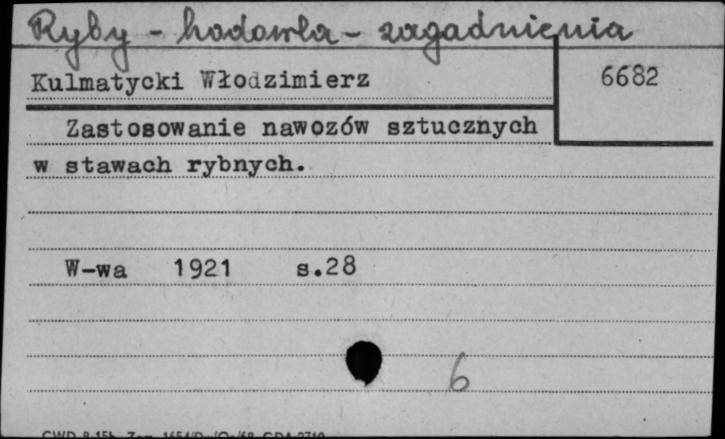 Ryby - hodowla - zagadnienia
Kulmatycki Włodzimierz 6682
Zastosowanie nawozów sztucznych
w stawach rybnych.
W-wa 1921 s.28
6